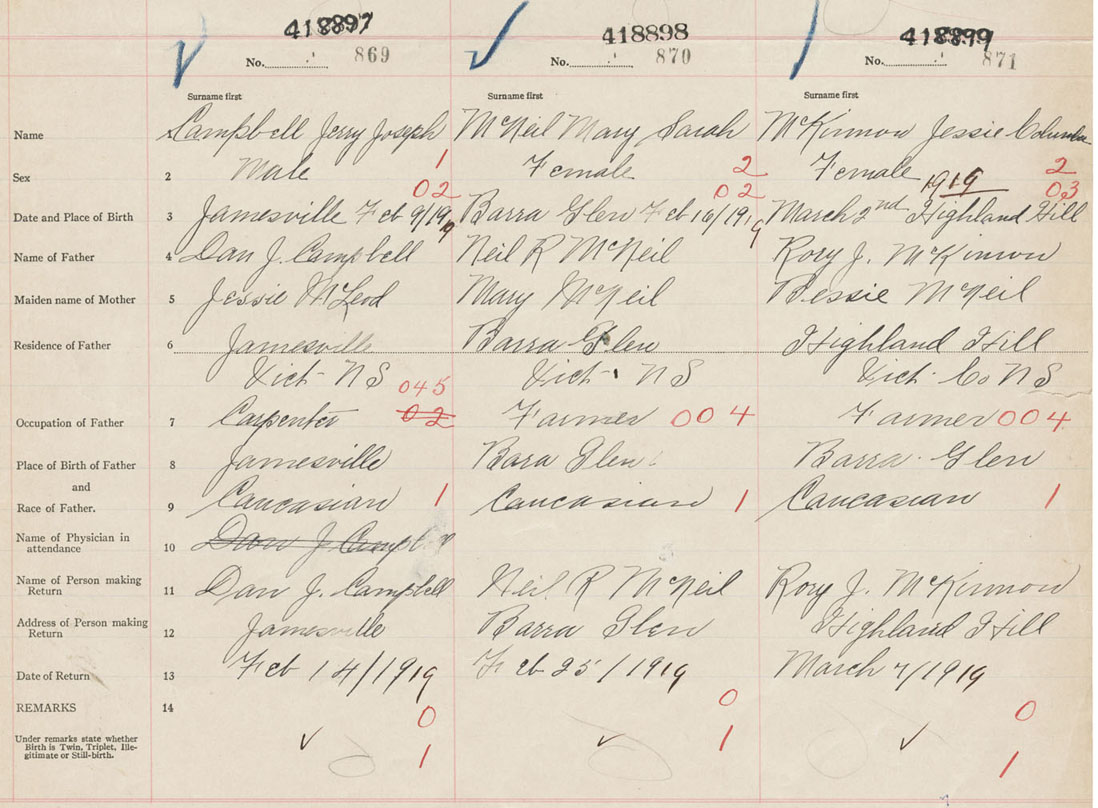 418897 418898 418899
No. 869 No. 870 No. 871
Surname first Surname first Surname first
Name 1 Campbell Jerry Joseph McNeil Mary Sarah McKinnon Jessie Columba
Sex 2 Male 1 Female 2 Female 2
02 02 1919 03
Date and Place of Birth 3 Jamesville Feb 9/1919 Barra Glen Feb 16/1919 March 2nd Highland Hill
Name of Father 4 Dan J. Campbell Neil R McNeil Rory J. McKinnon
Maiden name of Mother 5 Jessie McLeod Mary McNeil Bessie McNeil
Residence of Father 6 Jamesville Barra Glen Highland Hill
Vict- NS 045 Vict- NS Vict. Co NS
Occupation of Father 7 Carpenter 02 Farmer 004 Farmer 004
Place of Birth of Father 8 Jamesville Bara Glen Barra Glen
and
Race of Father. 9 Caucasian 1 Caucasian 1 Caucasian 1
Name of Physician in
attendance 10 Dan J Campbell
Name of Person making
Return 11 Dan J. Campbell Neil R McNeil Rory J. McKinnon
Address of Person making
Return 12 Jamesville Barra Glen Highland Hill
Date of Return 13 Feb 14/1919 Feb 25/1919 March 7/1919
REMARKS 14 0 0 0
Under remarks state whether
Birth is Twin, Triplet, Ille-
gitimate or Still-birth. 1 1 1